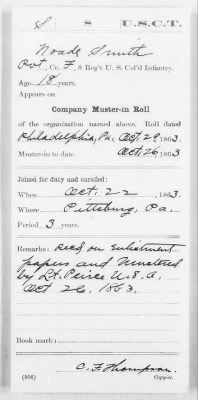 S 8 U.S.C.T.
Noade Smith
Pvt., Co. F, 8 Reg't U. S. Col'd Infantry.
Age 18 years.
Appears on
Company Muster-in Roll
of the organization named above. Roll dated
Philadelphia, Pa., Oct. 29, 1863.
Muster-in to date Oct. 26, 1863
Joined for duty and enrolled:
When Oct. 22, 1863.
Where Pittsburg, Pa.
Period 3 years.
Remarks: Recd on enlistment
papers and mustered
by Lt. Peirce U.S.A.
Oct 26, 1863.
Book mark:
C. F. Thompson
(356) Copyist.